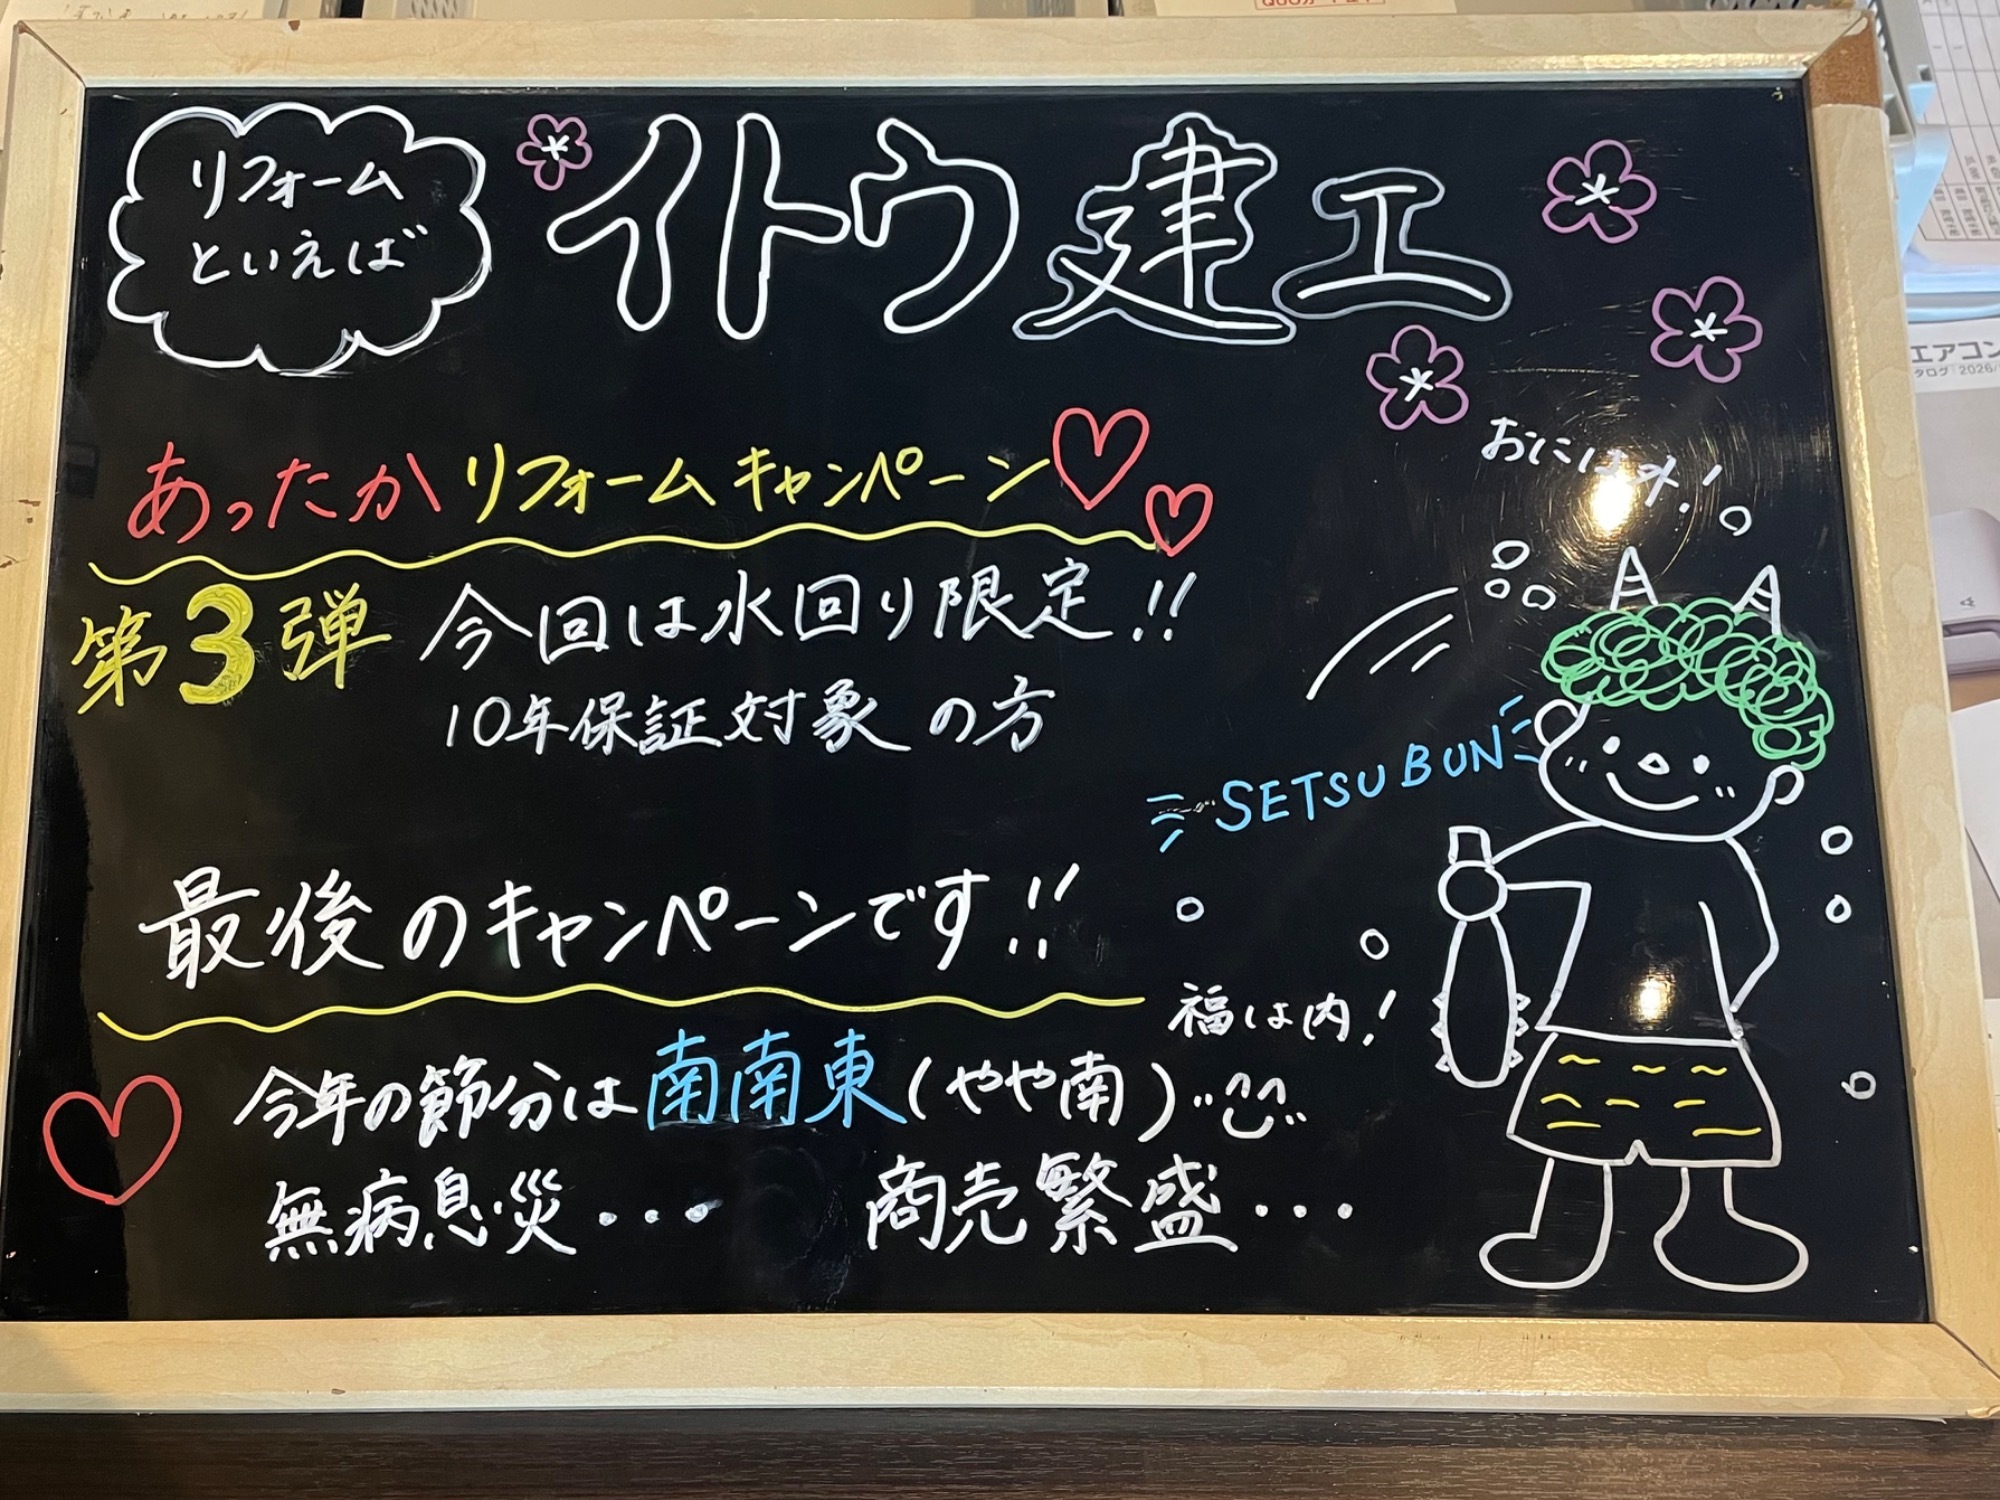 リフォーム
といえば
イトウ建工
あったかリフォームキャンペーン
第3弾 今回は水回り限定!!
10年保証対象の方
おには外!
SETSUBUN
最後のキャンペーンです!!
福は内!
今年の節分は南南東(やや南)
無病息災・・・ 商売繁盛・・・
エアコン